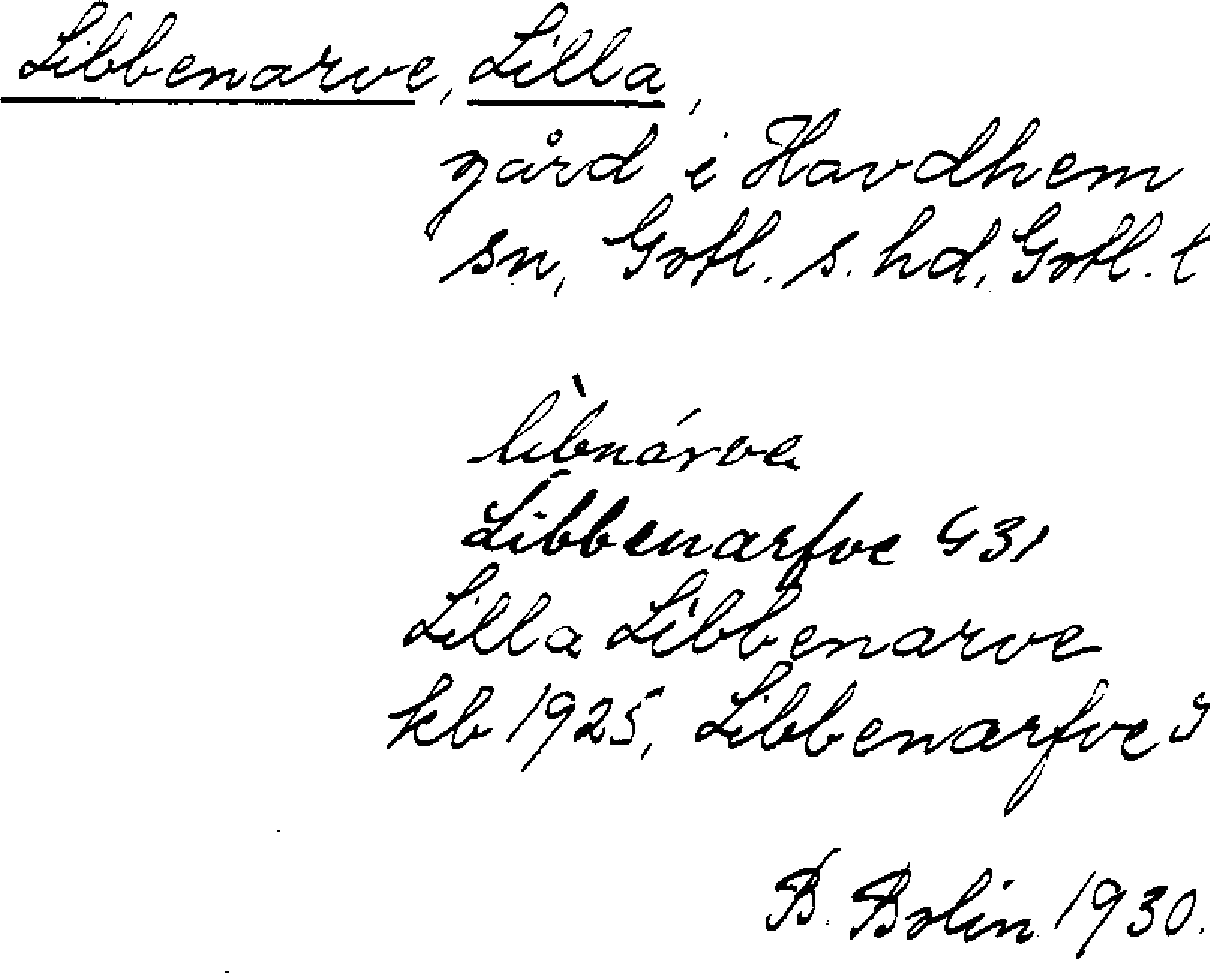 Libbenarve, Lilla,
gård i Havdhem
sn, Gotl. s. hd, Gotl. l
lìbnárve
Libbenarfve G31
Lilla Libbenarve
kb 1925, Libbenarfve J
B. Bolin 1930.